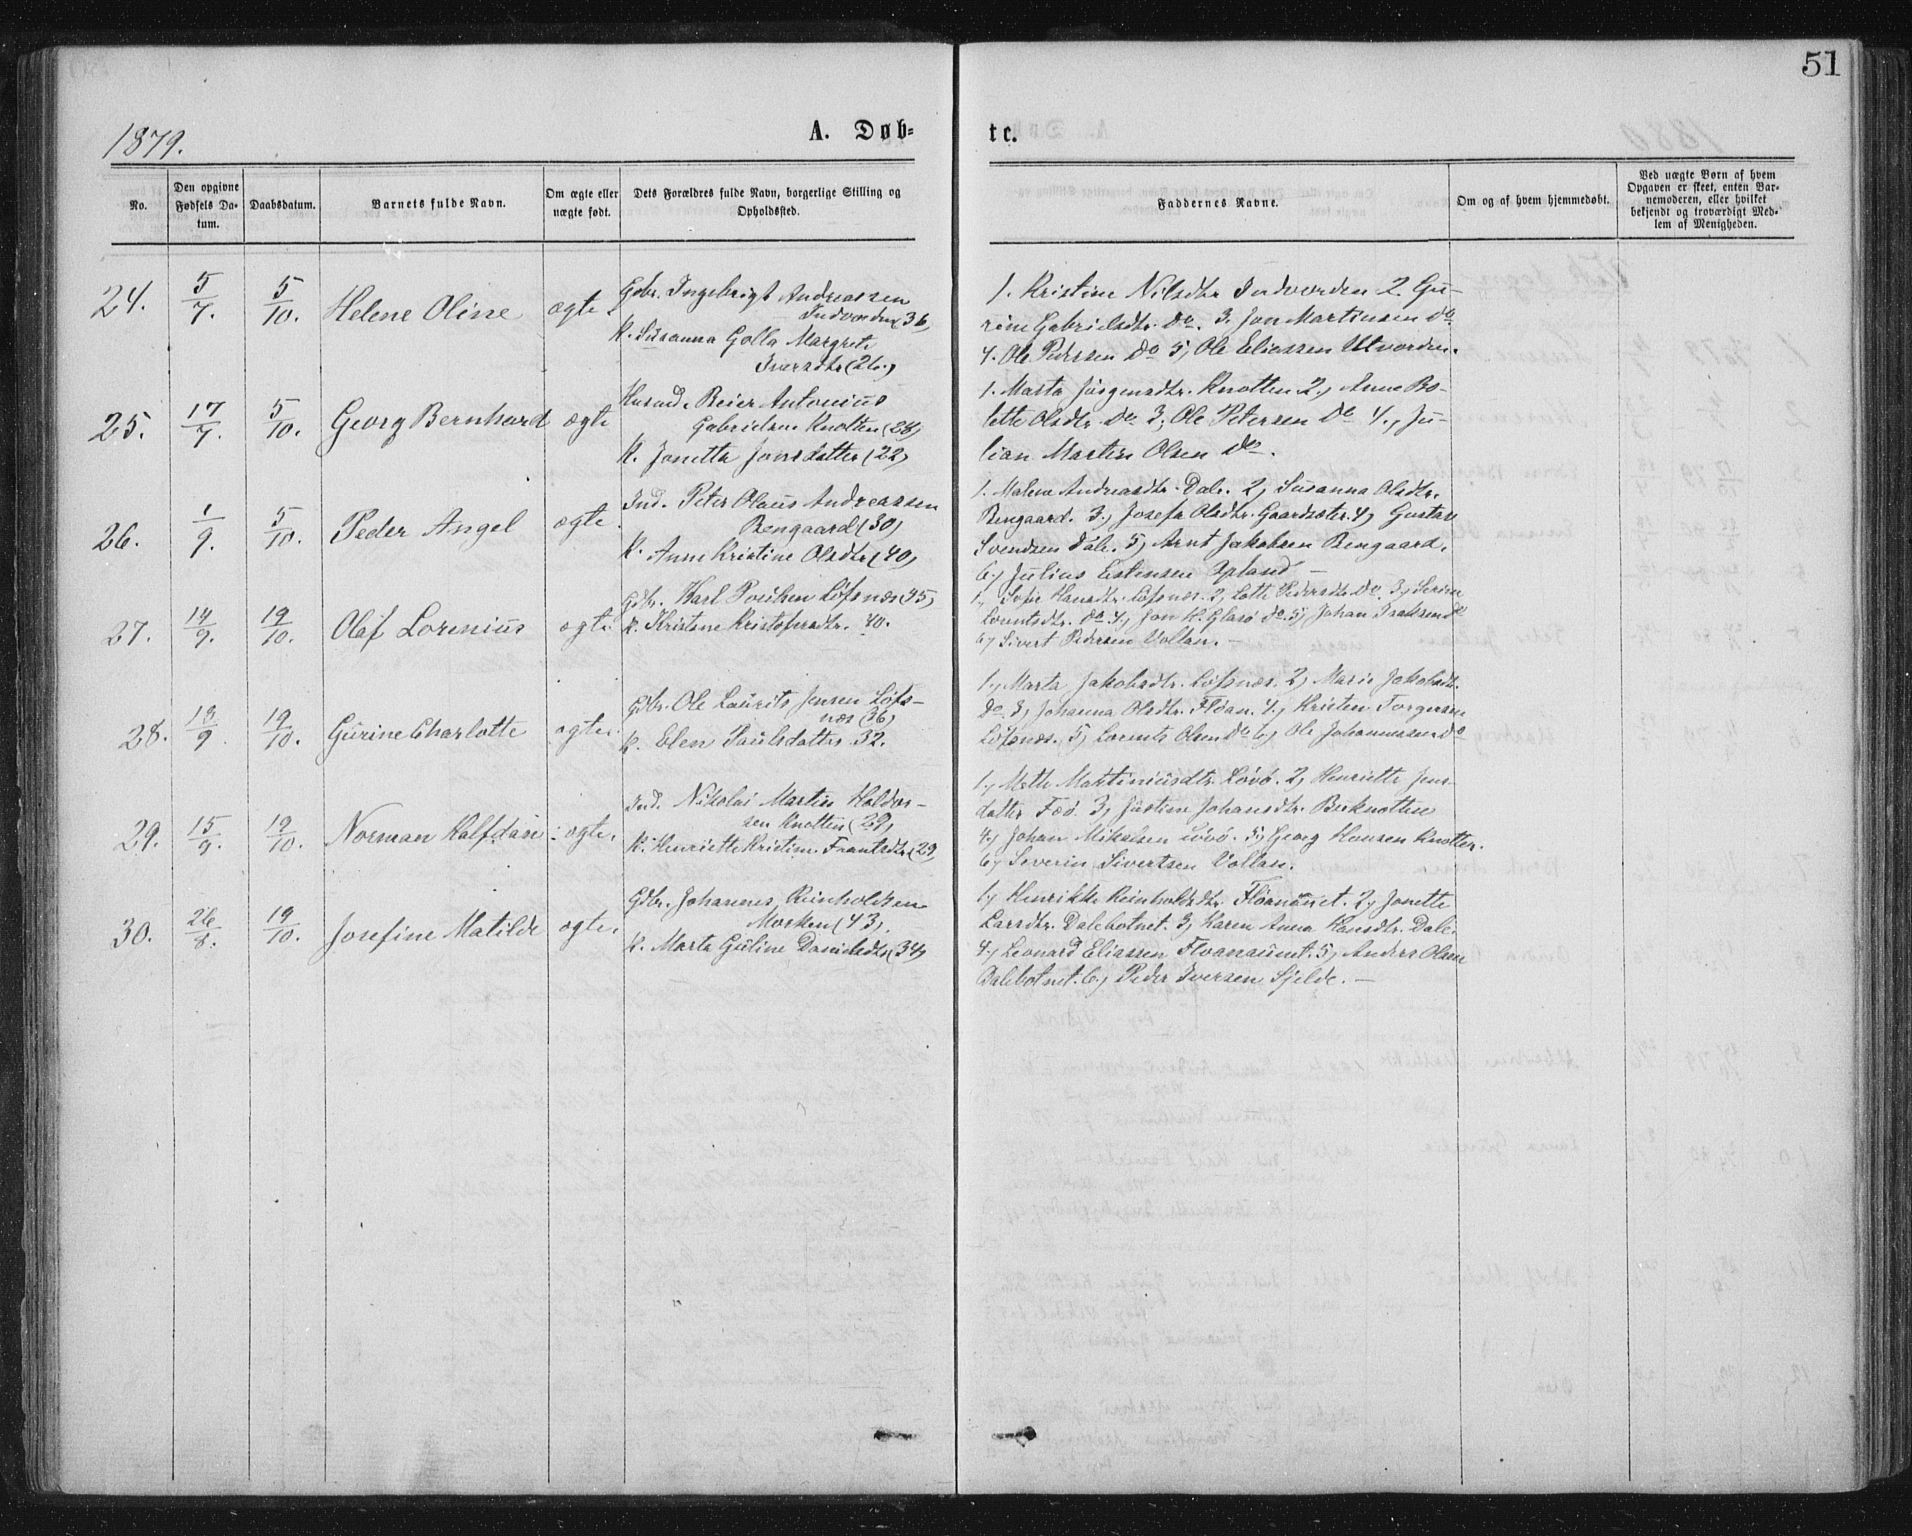 51
1879.
A. Døb-
te.
No.
Den opgivne Fødsels Da-tum.
Daabsdatum.
Barnets fulde Navn.
Om ægte eller uægte født.
Dets Forældres fulde Navn, borgerlige Stilling og Opholdssted.
Faddernes Navne.
Om og af hvem hjemmedøbt.
Ved uægte Børn af hvem Opgaven er skeet, enten Bar-nemoderen, eller hvilket bekjendt og troværdigt Med-lem af Menigheden.
24. 5/7. 5/10. Helene Oline ægte
Gbr. Ingebrigt Andreassen
Indvorden (36)
K. Susanna Golla Margrete
Iversdtr (26.)
1. Kristine Nilsdtr Indvorden 2. Gu-
rine Gabrielsdtr. do. 3. Jon Martinsen do
4. Ole Pedersen do 5, Ole Eliassen Utvorden.
25. 17/7. 5/10. Georg Bernhard ægte
Husmd. Beier Antonius
Gabrielsen Knotten (28)
K. Jonetta Jonsdatter (22)
1. Marta Jørgensdtr. Knotten 2, Anne Bo-
lette Olsdtr. do 3, Ole Petersen do 4., Ju-
lian Martin Olsen do.
26. 1/9. 5/10. Peder Angel ægte.
Ind. Peter Olaus Andreassen
Bengaard (30)
K. Anne Kristine Olsdtr (40)
1. Malene Andreasdtr. Dale. 2, Susanna Olsdtr.
Bengaard. 3, Josefa Olsdtr. Gaardsæter 4, Gustav
Svendsen Dale. 5, Arnt Jakobsen Bengaard.
6, Julius Estensen Opland —
27. 14/9. 19/10. Olaf Lorenius ægte.
Gdbr. Karl Poulsen Løfsnæs (35)
K. Kristine Kristofersdtr. 40.
1, Sofie Hansdtr. Løfsnæs. 2, Lette Pedersdtr. do. 3, Serine
Lorentsdtr. do 4, Jon K. Glasø do. 5, Johan Isaksen do
6, Sivert Pedersen Vollan. —
28. 18/9. 19/10. Gurine Charlotte ægte.
Gdbr. Ole Laurits Jensen Løfs-
næs (36)
K. Elen Paulsdatter 32.
1, Marta Jakobsdtr. Løfsnæs. 2, Marie Jakobsdtr.
do 3, Johanna Olsdtr. Floan. 4, Kristen Torgersen
Løfsnæs. 5, Lorents Olsen do 6, Ole Johannessen do
29. 15/9. 19/10. Norman Halfdan ægte.
Ind. Nikolai Martin Haldor-
sen Knotten (29)
K. Henriette Kristine Frantsdtr (29)
1, Mette Martiniusdtr. Løvø. 2, Henriette Jens-
datter Fæø. 3, Justine Johansdtr. Berknotten
4, Johan Mikalsen Løvø. 5, Georg Hansen Knotten.
6, Severin Sivertsen Vollan.
30. 26/8. 19/10. Josefine Matilde ægte.
Gdbr. Johannes Reinholdsen
Morken (43).
K. Marta Guline Danielsdtr. (34)
1, Henrikke Reinholdsdtr. Floanaunet. 2, Jonette
Larsdtr. Dalebotnet. 3, Karen Anna Hansdtr. Dale.
4, Leonard Eliassen Floanaunet. 5, Anders Olsen
Dalebotnet. 6, Peder Iversen Sjelde. —